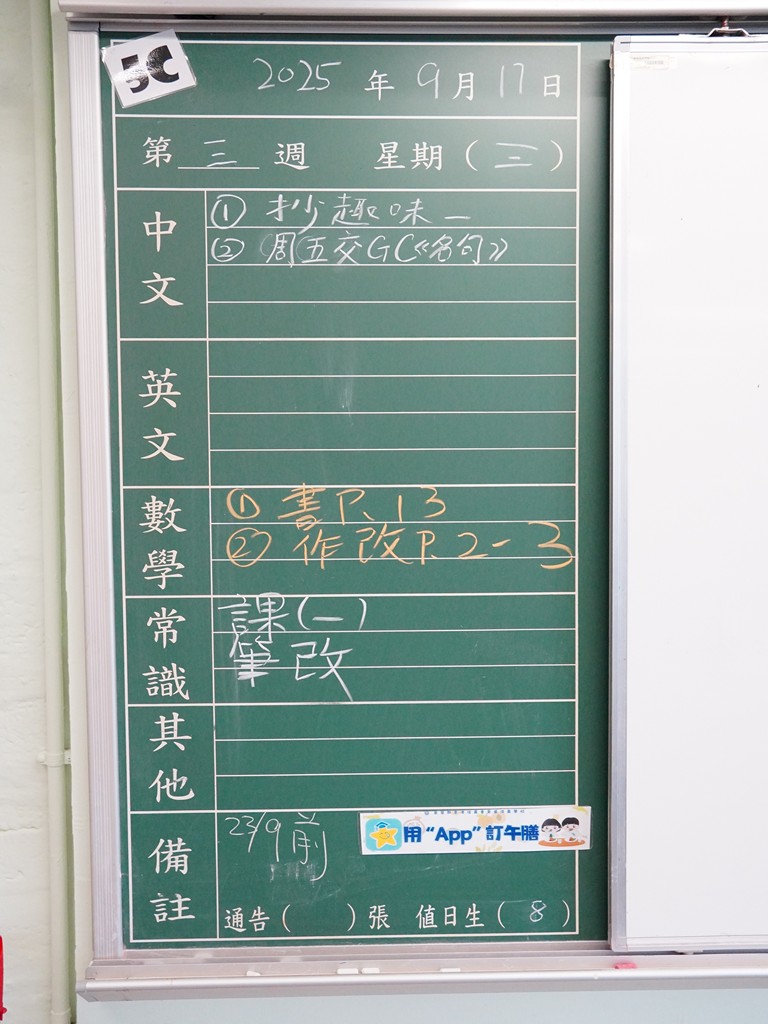 5C
2025 年 9 月 17 日
第 三 週 星期 ( 三 )
中文
① 抄趣味一
② 周五交GC《名句》
英文
數學
① 書P.13
② 作改P.2-3
常識
課(一)
筆改
其他
備註
23/9前
用“App”訂午膳
通告( )張 值日生( 8 )